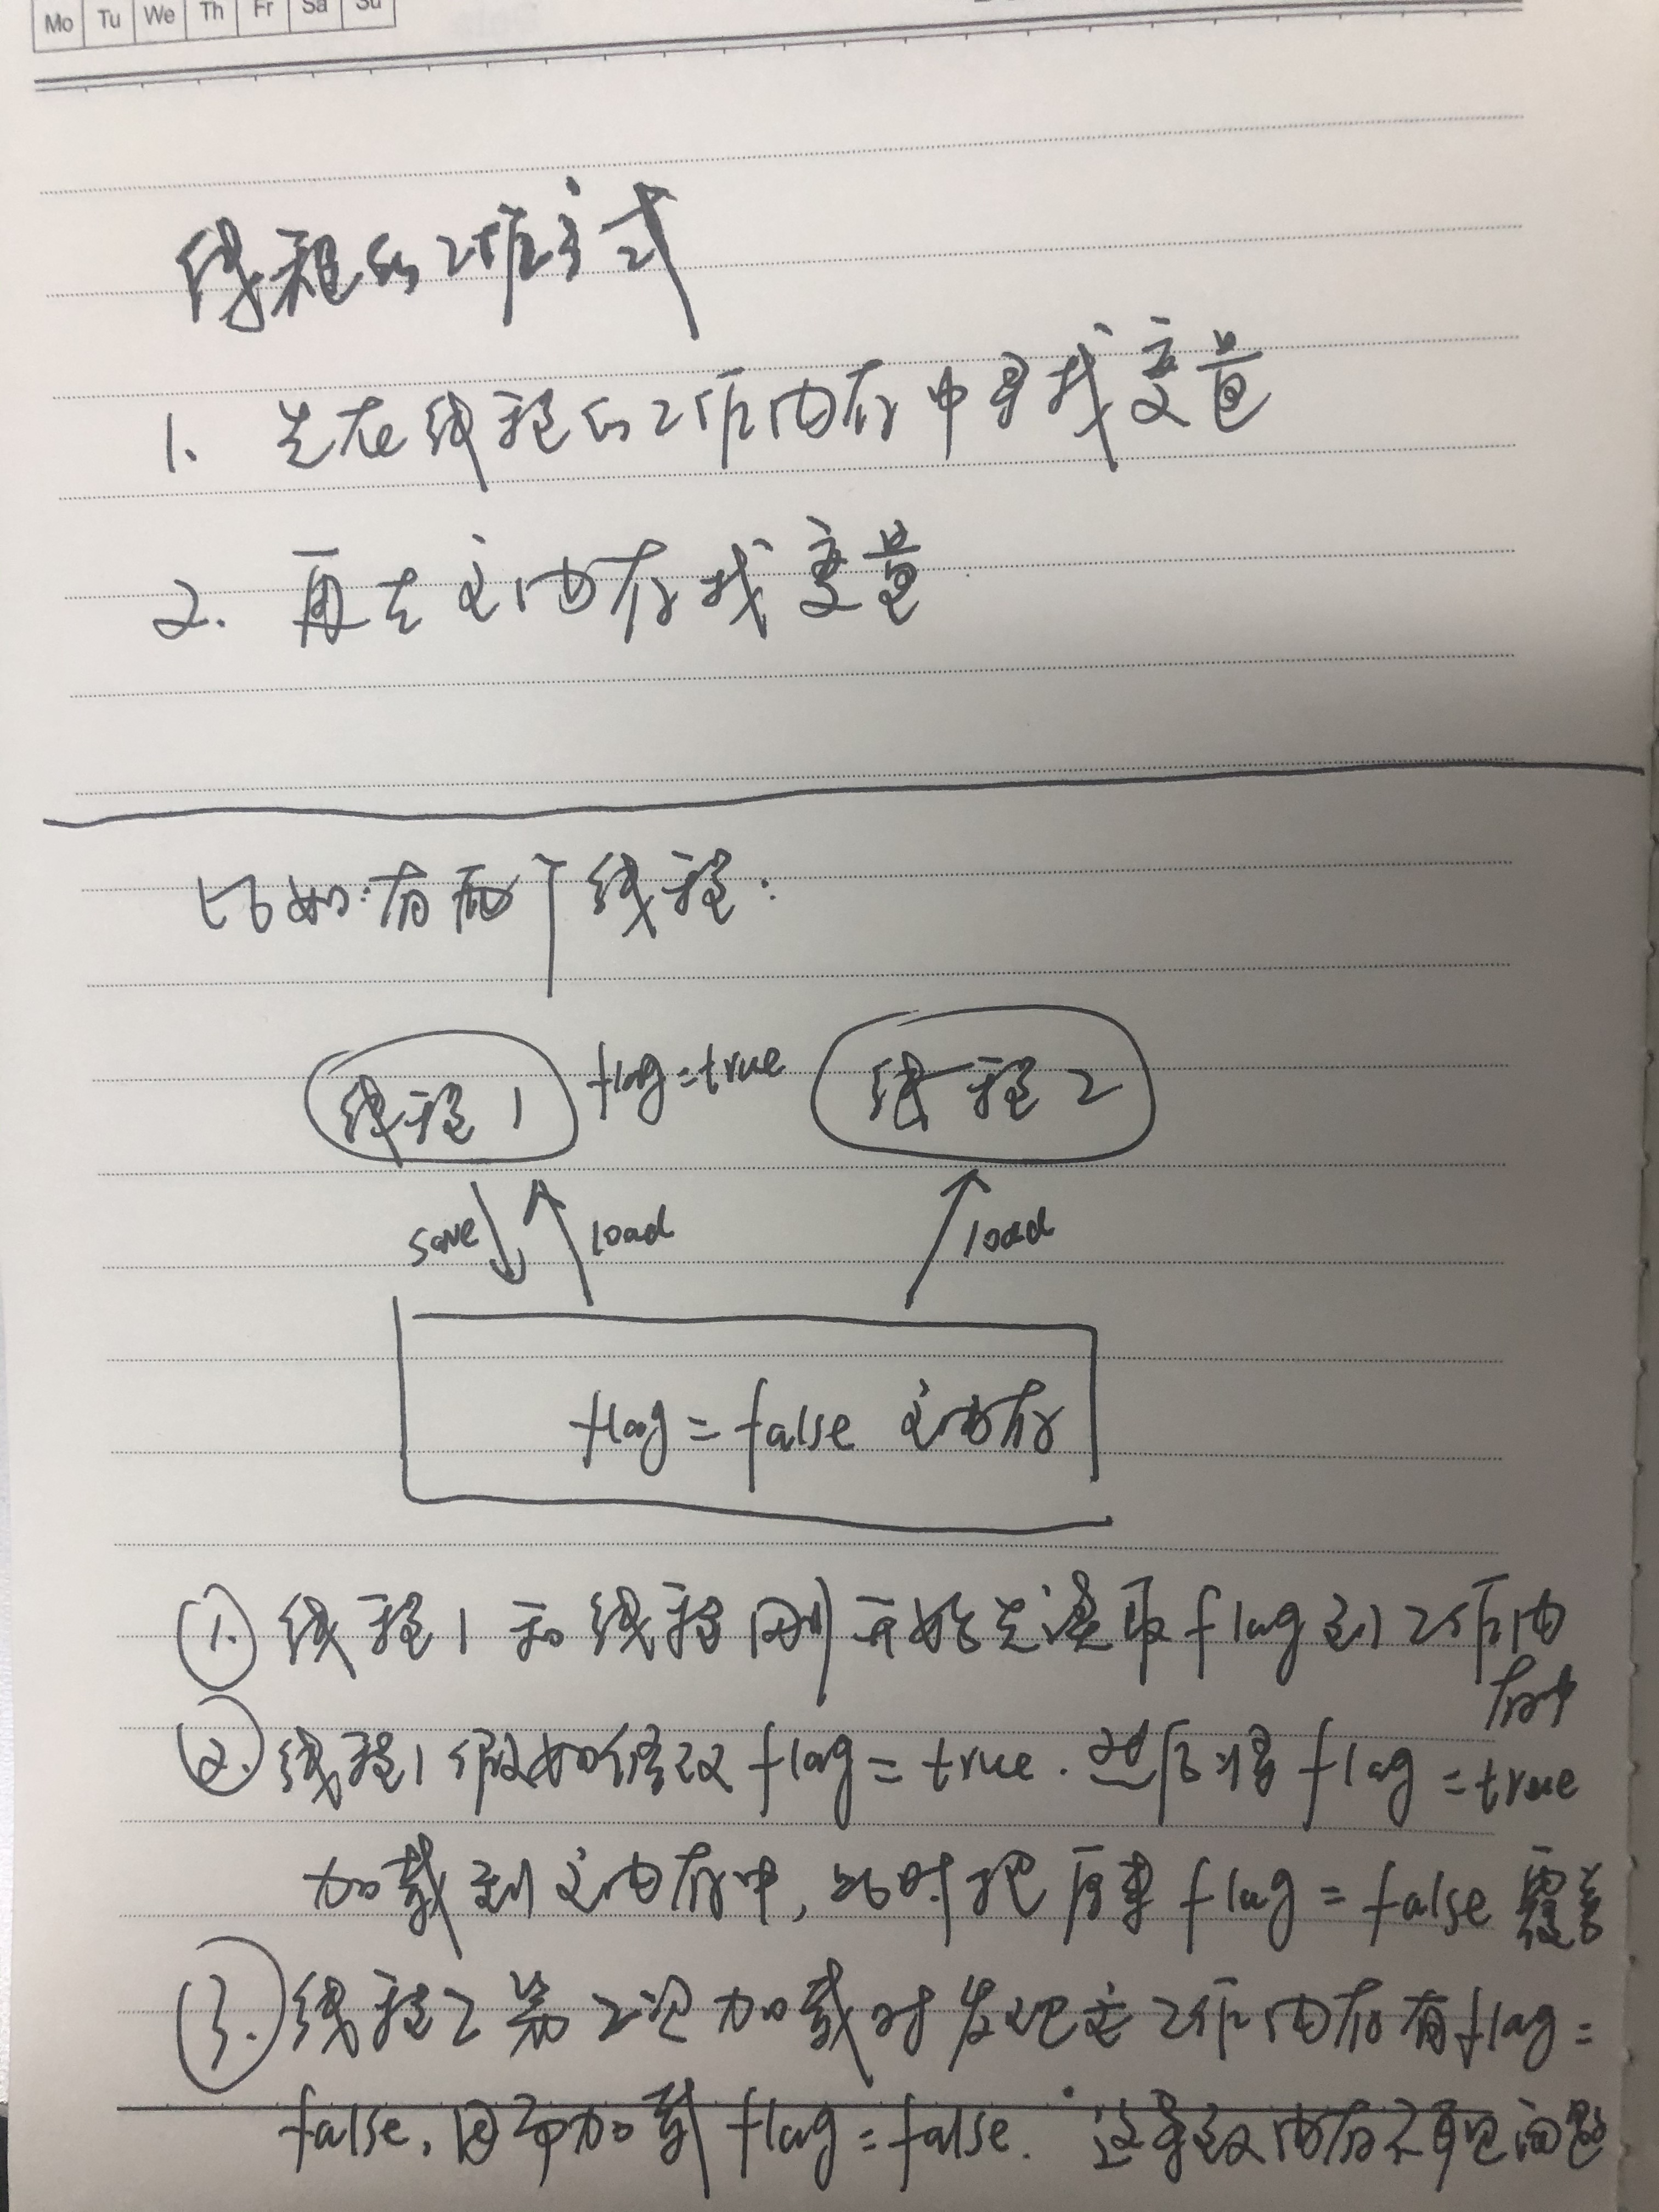 Mo Tu We Th Fr Sa Su
线程的工作方式
1. 先在线程的工作内存中寻找变量
2. 再去主内存找变量
比如:有两个线程:
线程1 flag=true 线程2
save load load
flag=false 主内存
①. 线程1和线程刚开始先读取flag到工作内
存中
②. 线程1假如修改flag=true. 然后将flag=true
加载到主内存中, 此时把原来flag=false覆盖
③. 线程2第2次加载时发现 工作内存有flag=
false, 因 加载flag=false. 这导致内存不可见问题